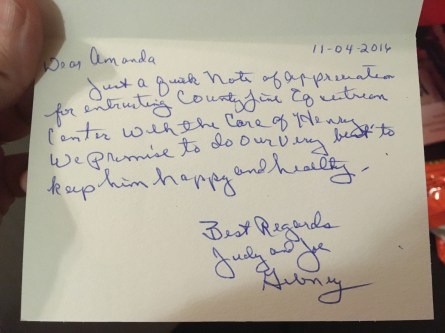 11-04-2016
Dear Amanda
Just a quick Note of appreciation
for entrusting County Line Equestrean
Center with the care of Henry
We promise to do our very best to
keep him happy and healthy.
Best Regards
Judy and Joe